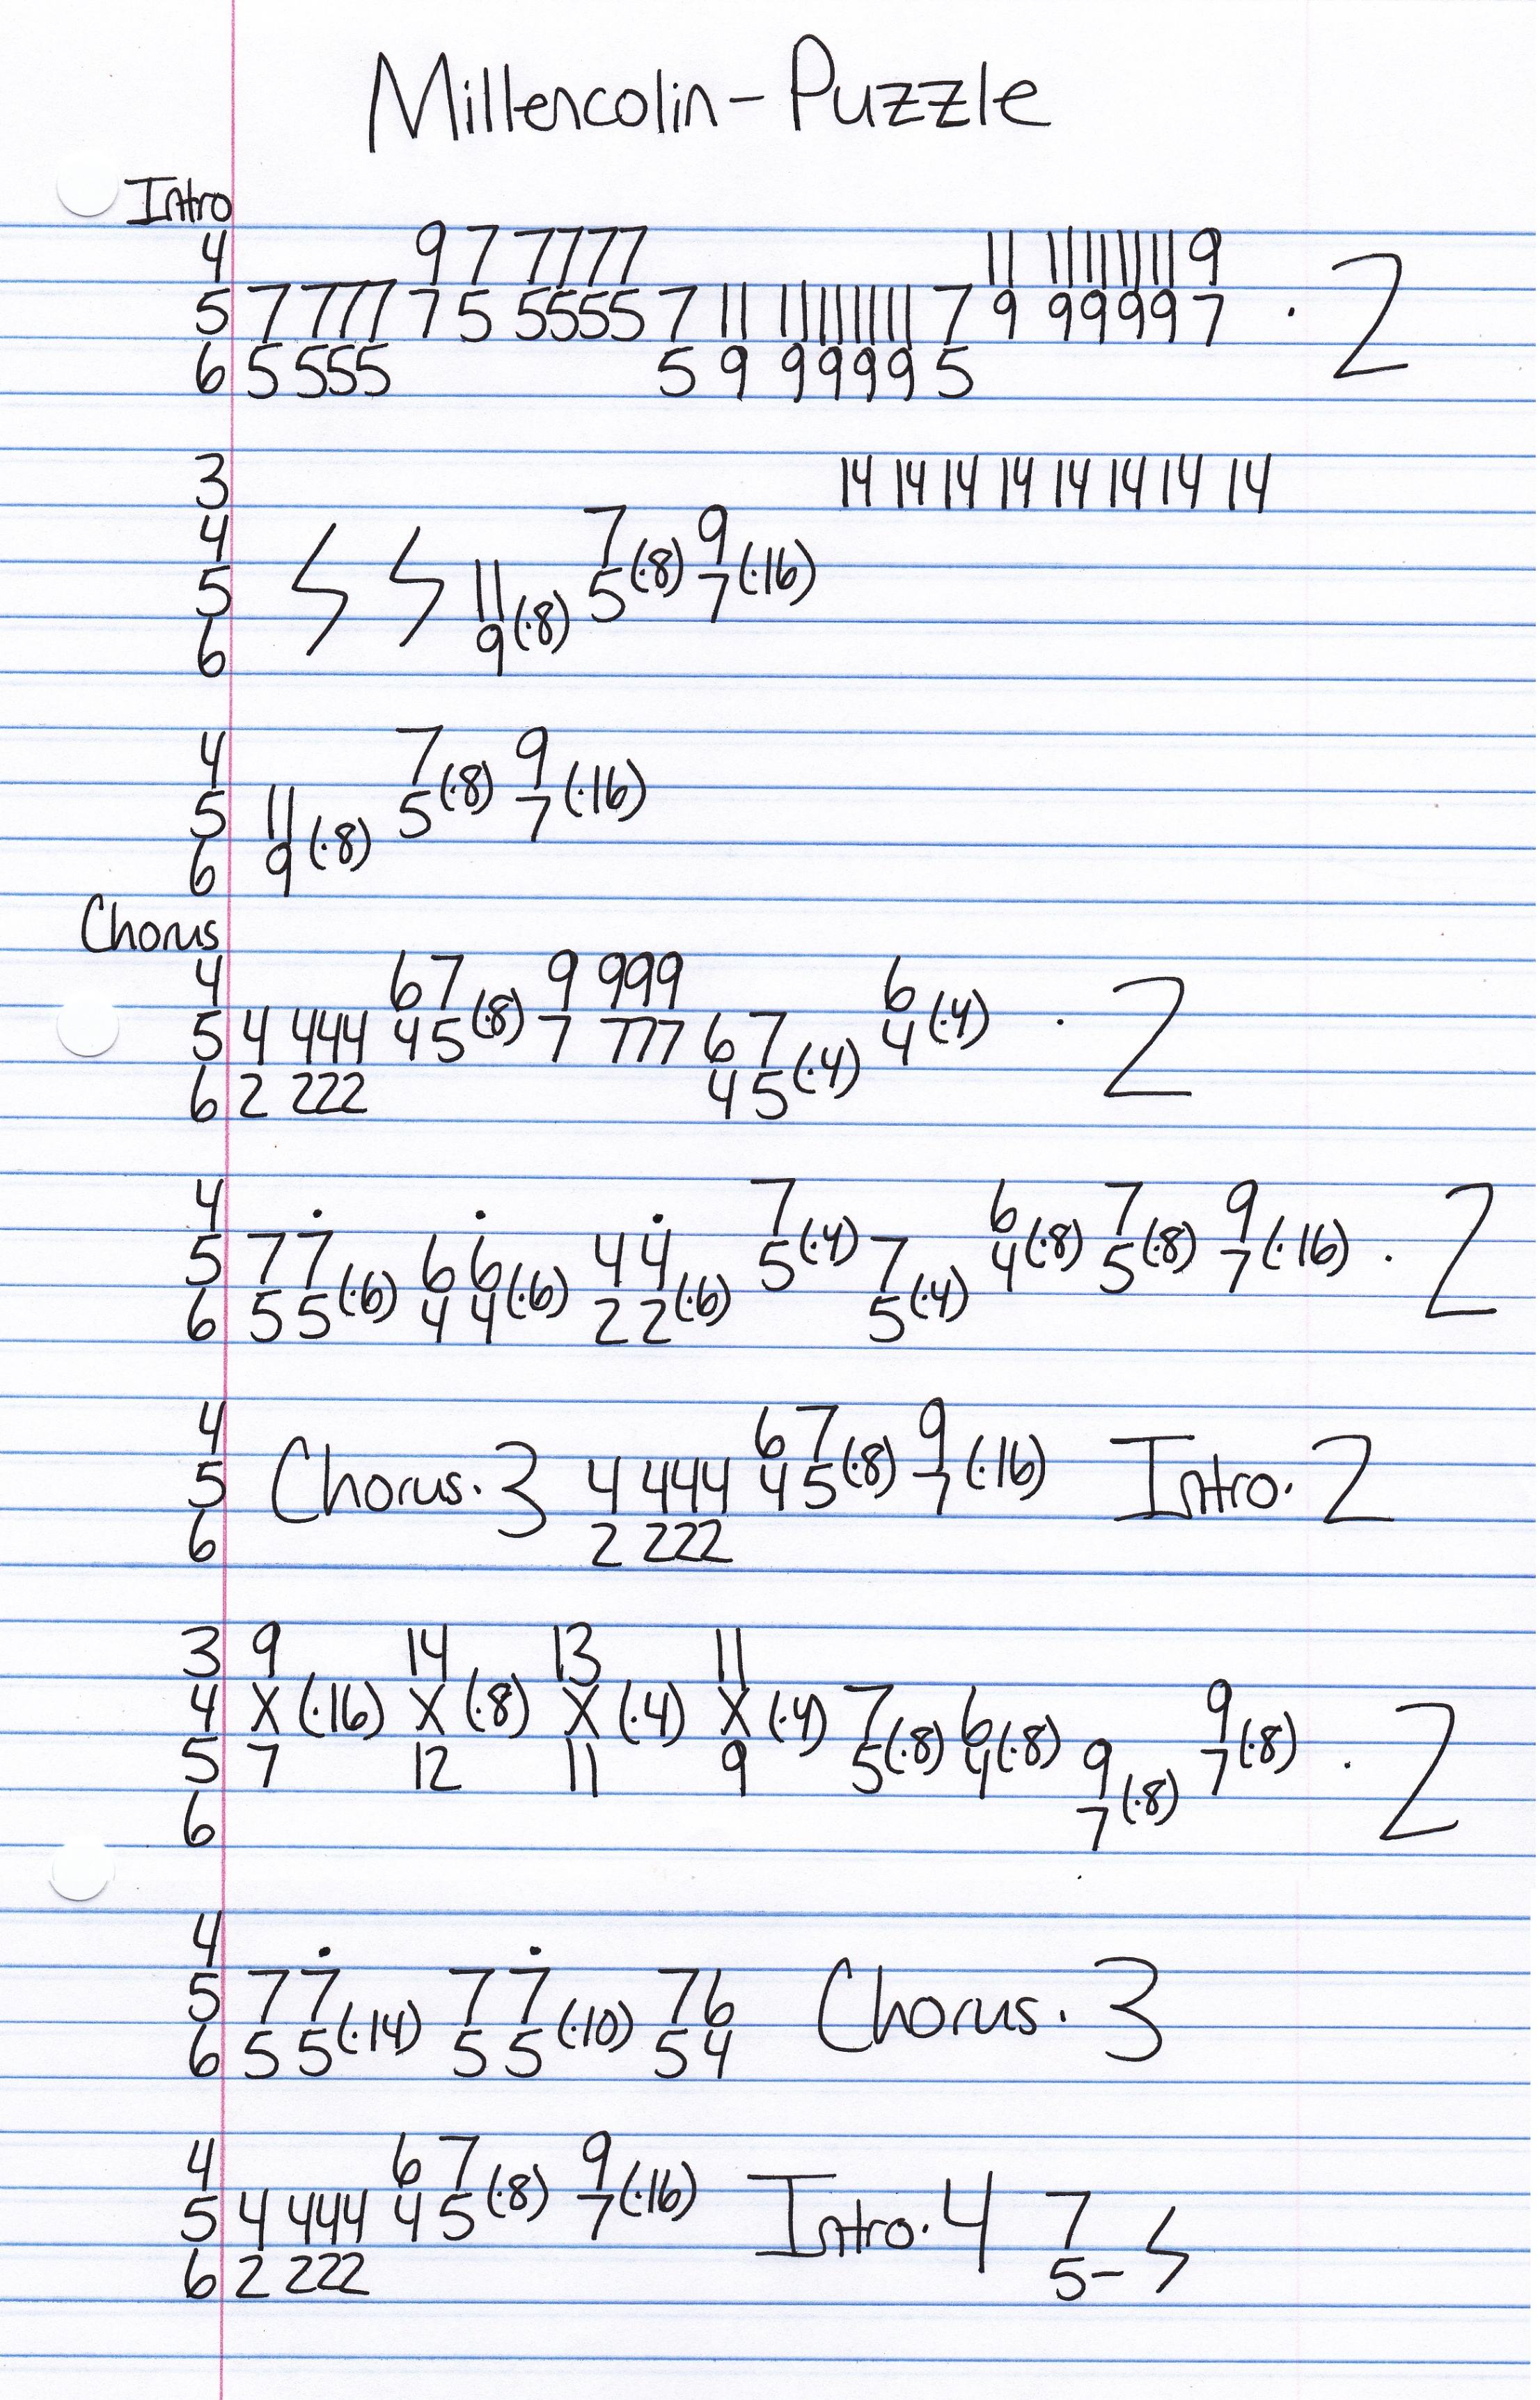 Millencolin - Puzzle
Intro
4 9 7 7777 11 11111111 9
5 7 777 7 5 5555 7 11 11111111 7 9 9999 7 · 2
6 5 555 5 9 9999 5
3 14 14 14 14 14 14 14 14
4 7 9
5 11 5 (·8) 7 (·16)
6 9 (·8)
4 7 9
5 11 5 (·8) 7 (·16)
6 9 (·8)
Chorus
4 6 7 9 999 6
5 4 444 4 5 (·8) 7 777 6 7 4 (·4) · 2
6 2 222 4 5 (·4)
4 7 6 7 9
5 7 7̇ 6 6̇ 4 4̇ 5 (·4) 7 4 (·8) 5 (·8) 7 (·16) · 2
6 5 5 (·6) 4 4 (·6) 2 2 (·6) 5 (·4)
4 6 7 9
5 Chorus · 3 4 444 4 5 (·8) 7 (·16) Intro · 2
6 2 222
3 9 14 13 11
4 X (·16) X (·8) X (·4) X (·4) 7 6 9
5 7 12 11 9 5 (·8) 4 (·8) 9 7 (·8) · 2
6 7 (·8)
4
5 7 7̇ 7 7̇ 7 6 Chorus · 3
6 5 5 (·14) 5 5 (·10) 5 4
4 6 7 9
5 4 444 4 5 (·8) 7 (·16) Intro · 4 7
6 2 222 5-